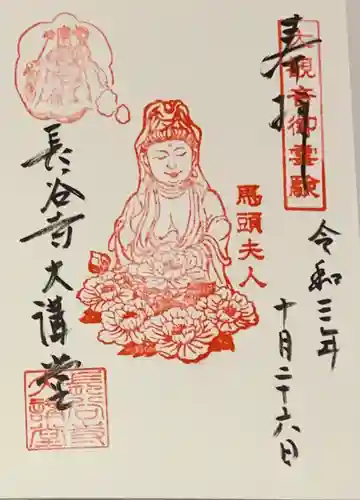 奉拝
大観音御霊験
令和三年
十月二十六日
馬頭夫人
長谷寺大講堂
長谷寺大講堂